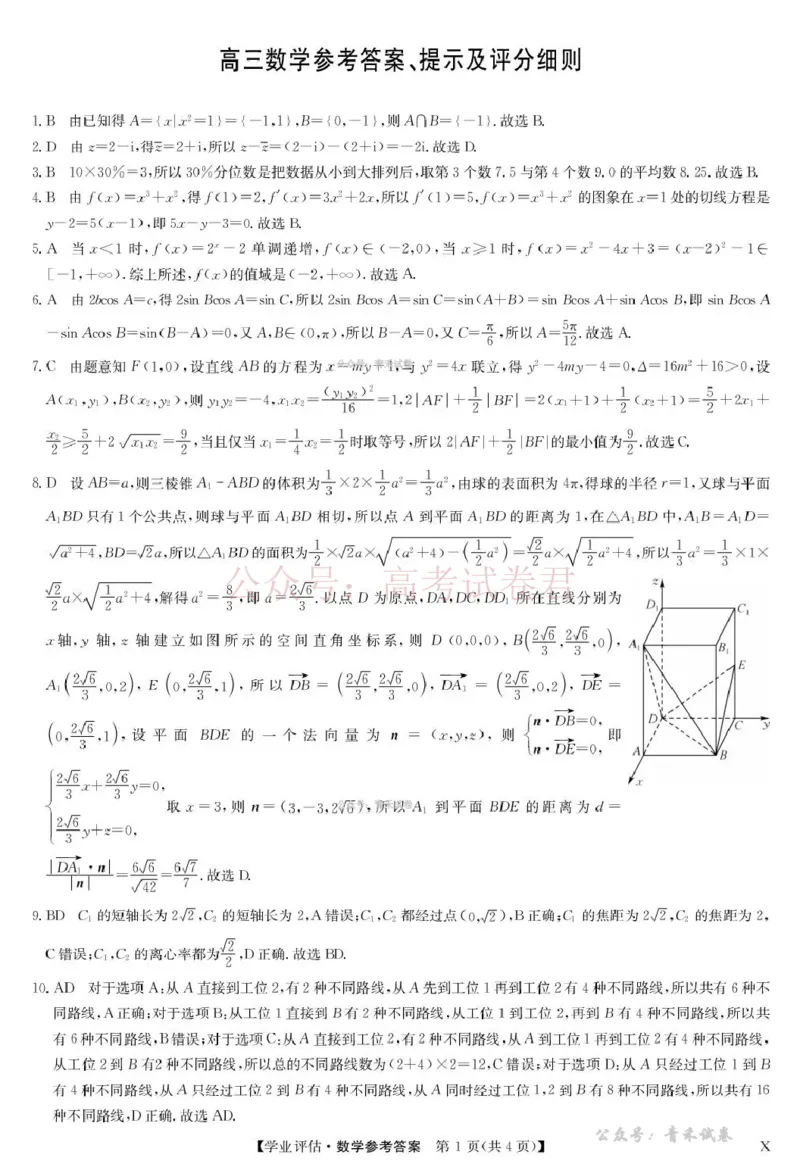 高三数学参考答案、提示及评分细则
1. B 由已知得 A={x|x²=1}={-1,1},B={0,-1},则 A∩B={-1}.故选 B.
2. D 由 z=2-i,得z̅=2+i,所以 z-z̅=(2-i)-(2+i)=-2i.故选 D.
3. B 10×30%=3,所以 30%分位数是把数据从小到大排列后,取第 3 个数 7.5 与第 4 个数 9.0 的平均数 8.25.故选 B.
4. B 由 f(x)=x³+x²,得 f(1)=2,f′(x)=3x²+2x,所以 f′(1)=5,f(x)=x³+x² 的图象在 x=1 处的切线方程是
y-2=5(x-1),即 5x-y-3=0.故选 B.
5. A 当 x<1 时,f(x)=2ˣ-2 单调递增,f(x)∈(-2,0),当 x≥1 时,f(x)=x²-4x+3=(x-2)²-1∈
[-1,+∞).综上所述,f(x)的值域是(-2,+∞).故选 A.
6. A 由 2bcos A=c,得 2sin Bcos A=sin C,所以 2sin Bcos A=sin C=sin(A+B)=sin Bcos A+sin Acos B,即 sin Bcos A
-sin Acos B=sin(B-A)=0,又 A,B∈(0,π),所以 B-A=0,又 C=π/6,所以 A=5π/12.故选 A.
7. C 由题意知 F(1,0),设直线 AB 的方程为 x=my+1,与 y²=4x 联立,得 y²-4my-4=0,Δ=16m²+16>0,设
A(x₁,y₁),B(x₂,y₂),则 y₁y₂=-4,x₁x₂=(y₁y₂)²/16=1,2|AF|+1/2|BF|=2(x₁+1)+1/2(x₂+1)=5/2+2x₁+
x₂/2≥5/2+2√(x₁x₂)=9/2,当且仅当 x₁=1/4x₂=1/2时取等号,所以 2|AF|+1/2|BF|的最小值为9/2.故选 C.
8. D 设 AB=a,则三棱锥 A₁-ABD 的体积为1/3×2×1/2a²=1/3a²,由球的表面积为 4π,得球的半径 r=1,又球与平面
A₁BD 只有 1 个公共点,则球与平面 A₁BD 相切,所以点 A 到平面 A₁BD 的距离为 1,在△A₁BD 中,A₁B=A₁D=
√(a²+4),BD=√2a,所以△A₁BD 的面积为1/2×√2a×√((a²+4)-(1/2a²))=√2/2a×√(1/2a²+4),所以1/3a²=1/3×1×
√2/2a×√(1/2a²+4),解得 a²=8/3,即 a=2√6/3.以点 D 为原点,DA,DC,DD₁ 所在直线分别为
x 轴,y 轴,z 轴建立如图所示的空间直角坐标系,则 D(0,0,0),B(2√6/3,2√6/3,0),
A₁(2√6/3,0,2),E(0,2√6/3,1),所以 DB→=(2√6/3,2√6/3,0),DA₁→=(2√6/3,0,2),DE→=
(0,2√6/3,1),设平面 BDE 的一个法向量为 n=(x,y,z),则 {n·DB→=0, n·DE→=0, 即
{2√6/3x+2√6/3y=0, 2√6/3y+z=0, 取 x=3,则 n=(3,-3,2√6),所以 A₁ 到平面 BDE 的距离为 d=
|DA₁→·n|/|n|=6√6/√42=6√7/7.故选 D.
z
D₁
C₁
A₁
B₁
E
D
C
y
A
B
x
9. BD C₁ 的短轴长为 2√2,C₂ 的短轴长为 2,A 错误;C₁,C₂ 都经过点(0,√2),B 正确;C₁ 的焦距为 2√2,C₂ 的焦距为 2,
C 错误;C₁,C₂ 的离心率都为√2/2,D 正确.故选 BD.
10. AD 对于选项 A:从 A 直接到工位 2,有 2 种不同路线,从 A 先到工位 1 再到工位 2 有 4 种不同路线,所以共有 6 种不
同路线,A 正确;对于选项 B:从工位 1 直接到 B 有 2 种不同路线,从工位 1 到工位 2,再到 B 有 4 种不同路线,所以共
有 6 种不同路线,B 错误;对于选项 C:从 A 直接到工位 2,有 2 种不同路线,从 A 到工位 1 再到工位 2 有 4 种不同路线,
从工位 2 到 B 有2 种不同路线,所以总的不同路线数为(2+4)×2=12,C 错误;对于选项 D:从 A 只经过工位 1 到 B
有 4 种不同路线,从 A 只经过工位 2 到 B 有 4 种不同路线,从 A 同时经过工位 1,2 到 B 有 8 种不同路线,所以共有 16
种不同路线,D 正确.故选 AD.
公众号:高考试卷君
公众号:青禾试卷
【学业评估·数学参考答案 第 1 页(共 4 页)】
X